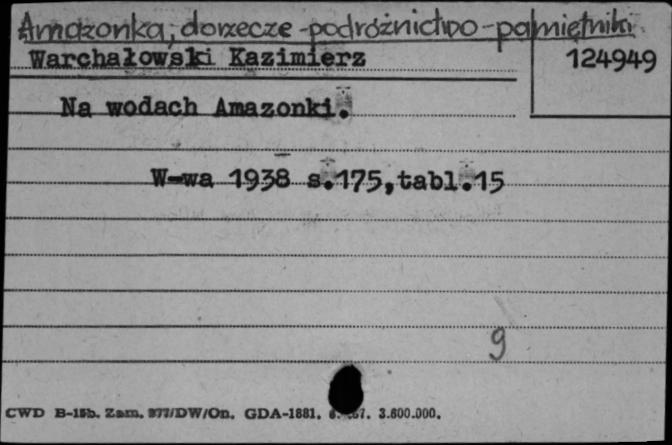 Amazonka, dorzecze - podróżnictwo - pamiętniki
Warchałowski Kazimierz
124949
Na wodach Amazonki.
W-wa 1938 s.175,tabl.15
9
CWD B-15b. Zam. 977/DW/On. GDA-1881. 3.600.000.